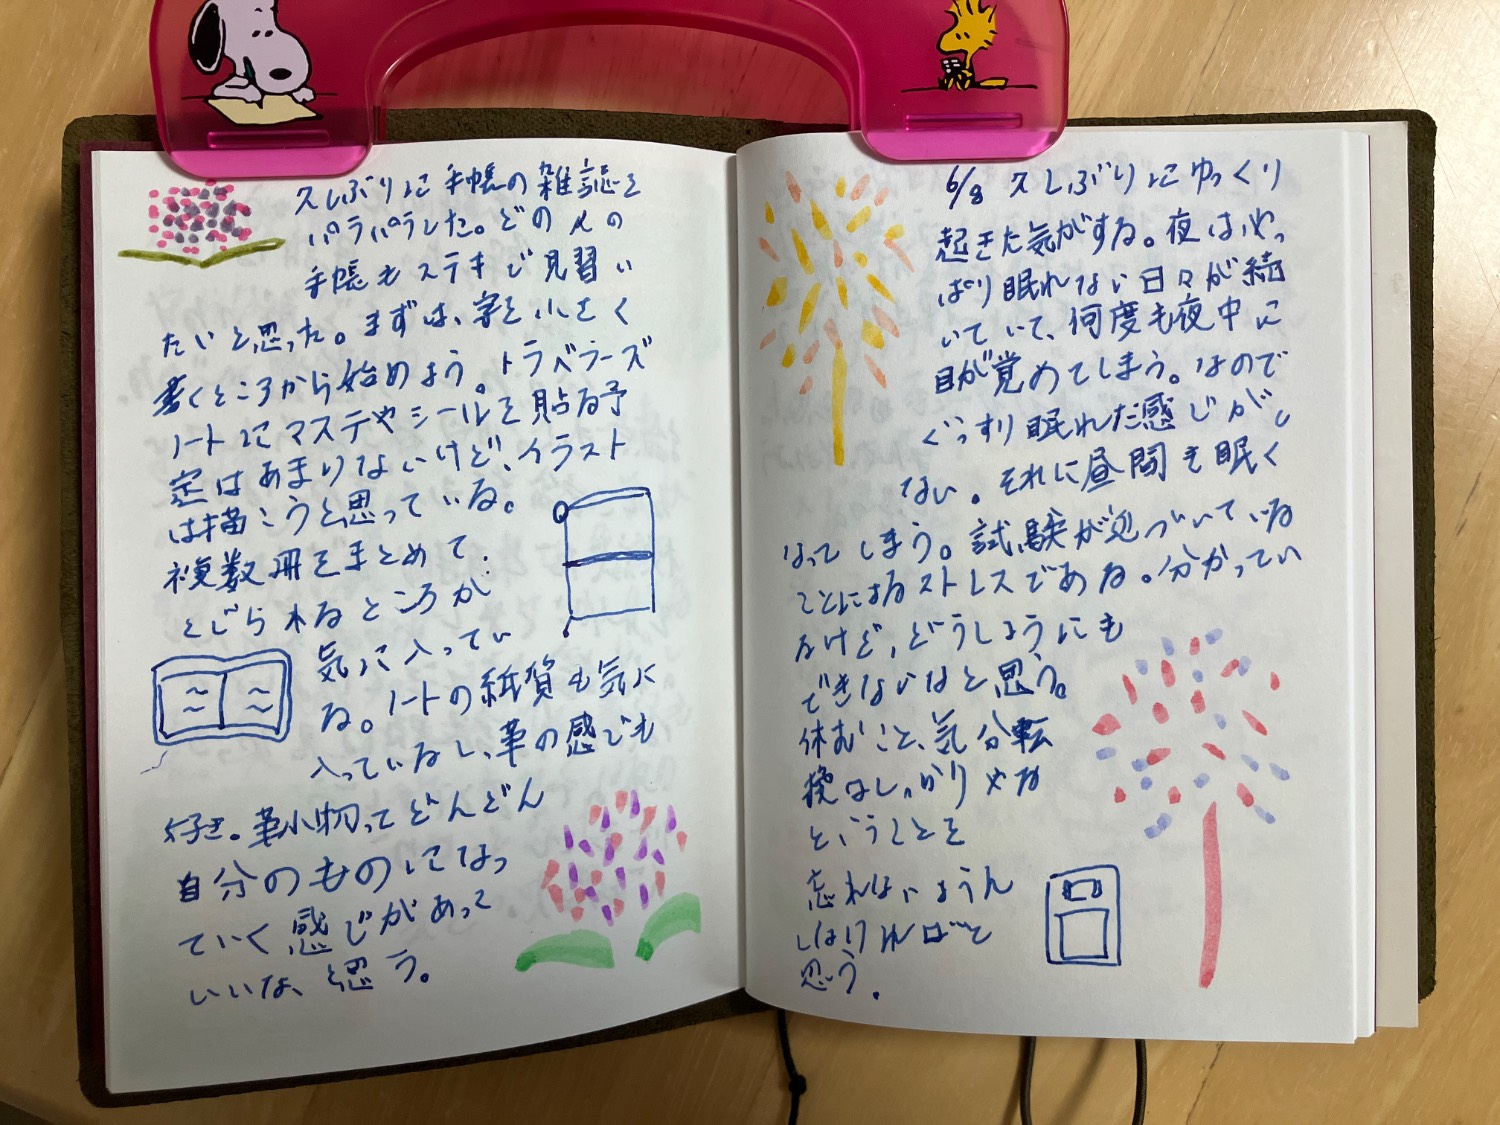 久しぶりに手帳の雑誌を
パラパラした。どの人の
手帳もステキで見習い
たいと思った。まずは、字を小さく
書くところから始めよう。トラベラーズ
ノートにマステやシールを貼る予
定はあまりないけど、イラスト
は描こうと思っている。
複数冊をまとめて
とじられるところが
気に入ってい
る。ノートの紙質も気に
入っているし、革の感じも
好き。革小物ってどんどん
自分のものになっ
ていく感じがあって
いいな、と思う。
6/8 久しぶりにゆっくり
起きた気がする。夜はやっ
ぱり眠れない日々が続
いていて、何度も夜中に
目が覚めてしまう。なので
ぐっすり眠れた感じがし
ない。それに昼間も眠く
なってしまう。試験が近づいている
ことによるストレスである。分かってい
るけど、どうしようにも
できないなと思う。
休むこと、気分転
換はしっかりやる
ということを
忘れないようん
しなければと
思う。